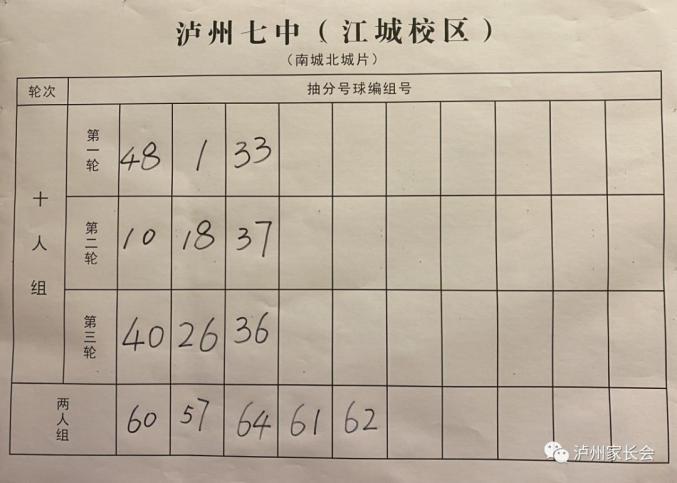 泸州七中（江城校区）
（南城北城片）
轮次 抽分号球编组号
十人组
第一轮 48 1 33
第二轮 10 18 37
第三轮 40 26 36
两人组 60 57 64 61 62
泸州家长会